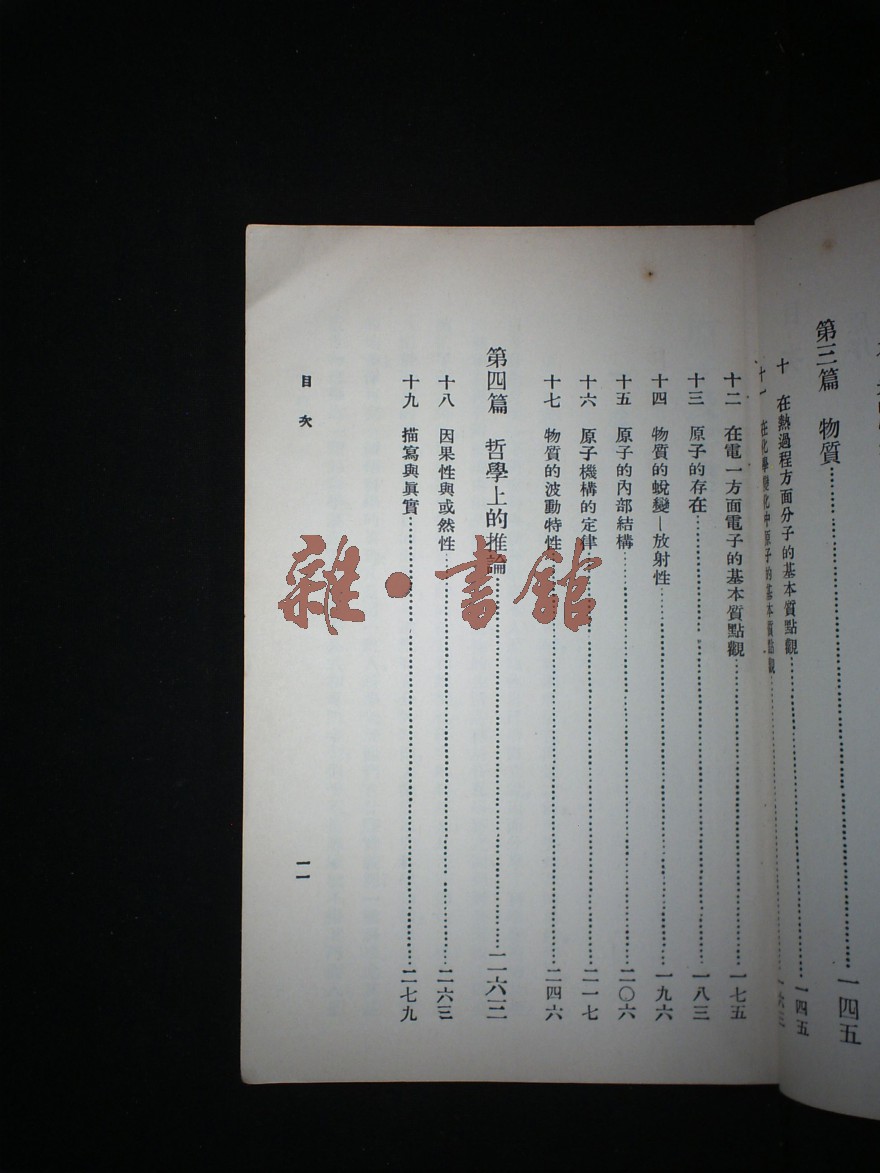 第三篇 物質……一四五
十 在熱過程方面分子的基本質點觀……一四五
十一 在化學變化中原子的基本質點觀……一六三
十二 在電一方面電子的基本質點觀……一七五
十三 原子的存在……一八三
十四 物質的蛻變—放射性……一九六
十五 原子的內部結構……二〇六
十六 原子機構的定律……二一七
十七 物質的波動特性……二四六
第四篇 哲學上的推論……二六三
十八 因果性與或然性……二六三
十九 描寫與眞實……二七九
目次
二
雜·書館